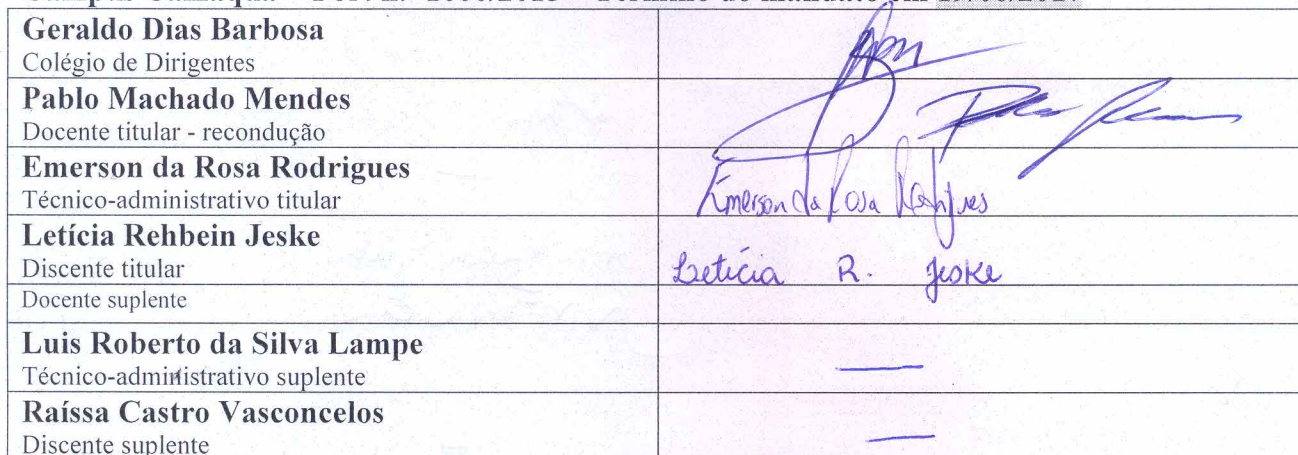 Geraldo Dias Barbosa
Colégio de Dirigentes
Pablo Machado Mendes
Docente titular - recondução
Emerson da Rosa Rodrigues
Técnico-administrativo titular
Emerson da Rosa Rodrigues
Letícia Rehbein Jeske
Discente titular
Letícia R. Jeske
Docente suplente
Luis Roberto da Silva Lampe
Técnico-administrativo suplente
Raíssa Castro Vasconcelos
Discente suplente